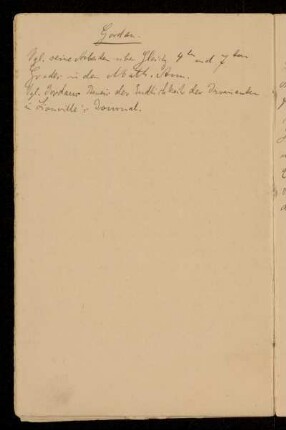 Gordan.
Vgl. seine Arbeiten über Gleich. 4ten und 7ten
Grades in den Math. Ann.
Vgl. Jordans Beweis der Endlichkeit der Invarianten
in Liouville's Journal.